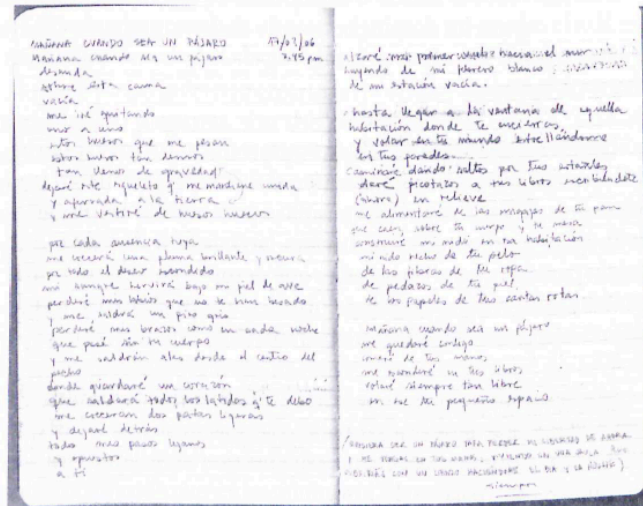 MAÑANA CUANDO SEA UN PÁJARO 17/03/06
Mañana cuando sea un pájaro 7.45 pm
desnuda
sobre esta cama
vacía
me iré quitando
uno a uno
estos huesos que me pesan
estos huesos tan densos
tan llenos de gravedad
dejaré este esqueleto q me mantiene unida
y aferrada a la tierra
y me vestiré de huesos huecos
por cada ausencia tuya
me crecerá una pluma brillante y oscura
por todo el deseo escondido
que aunque hervirá bajo mi piel de ave
perderé mis labios que no te han besado
y me saldrá un pico gris
perderé mis brazos como en cada noche
que pasé sin tu cuerpo
y me saldrán alas desde el centro del
pecho
donde guardaré un corazón
que saldará todos los latidos q te debo
me crecerán dos patas ligeras
y dejaré detrás
todos mis pasos lejanos
y opuestos
a ti
alzaré mi primer vuelo hacia el sur
huyendo de mi febrero blanco
de mi estación vacía.
hasta llegar a la ventana de aquella
habitación donde te encierras
y volar en tu mundo estrellándome
en tus paredes.
Caminaré dando saltos por tus estantes
daré picotazos a tus libros escribiéndote
en relieve
me alimentaré de las migajas de tu pan
que caen sobre tu cuerpo y tu mesa
construiré mi nido en tu habitación
mi nido hecho de tu pelo
de las pelusas de tu ropa
de pedazos de tu piel
de los papeles de tus cartas rotas.
Mañana cuando sea un pájaro
me quedaré contigo
comeré de tus manos
me esconderé en tus libros
volaré siempre tan libre
en ese tu pequeño espacio
SER UN PÁJARO PARA PERDER MI LIBERTAD DE AHORA
Y ME TENGAS EN TUS MANOS, VIVIENDO EN UNA JAULA
CON UN HACIÉNDOME EL DÍA Y LA NOCHE).
siempre